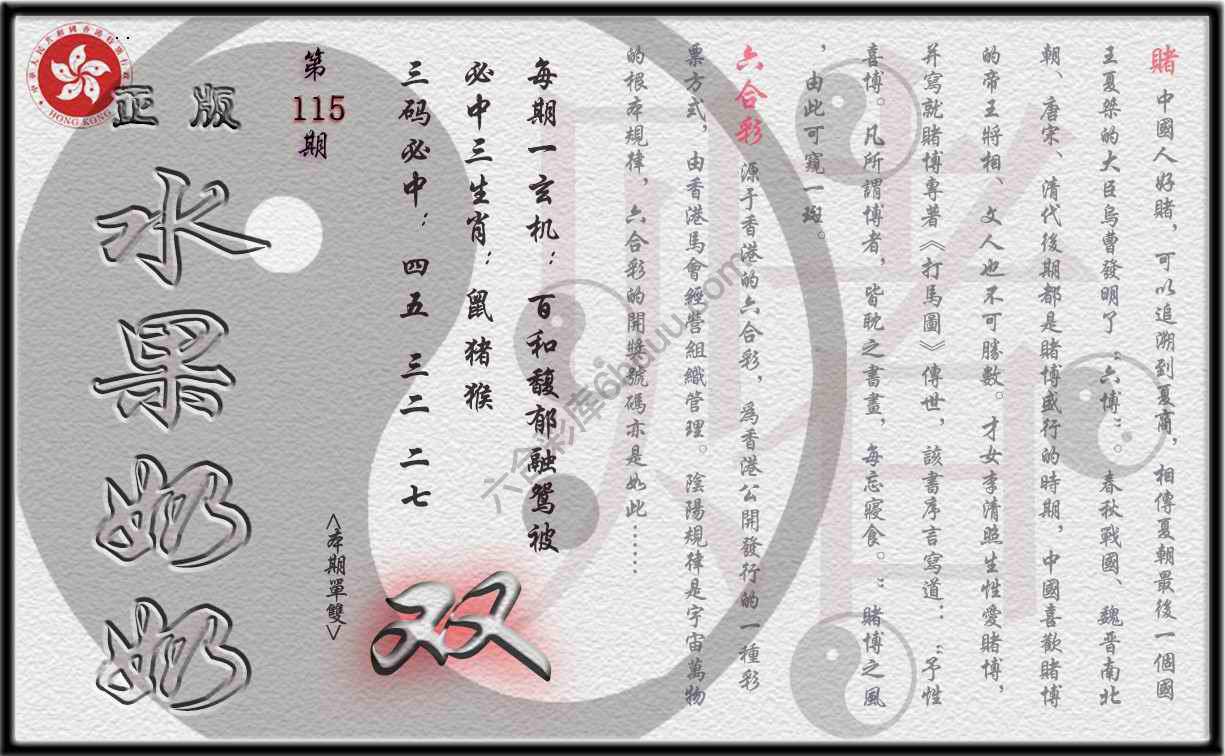 賭 中國人好賭，可以追溯到夏商，相傳夏朝最後一個國
王夏桀的大臣烏曹發明了“六博”。春秋戰國、魏晋南北
朝、唐宋、清代後期都是賭博盛行的時期，中國喜歡賭博
的帝王將相、文人也不可勝數。才女李清照生性愛賭博，
并寫就賭博專著《打馬圖》傳世，該書序言寫道：：“予性
喜博。凡所謂博者，皆耽之書畫，每忘寢食。”賭博之風
，由此可窺一斑。
六合彩 源于香港的六合彩，爲香港公開發行的一種彩
票方式，由香港馬會經營組織管理。陰陽規律是宇宙萬物
的根本規律，六合彩的開獎號碼亦是如此……
每期一玄机：百和馥郁融鸳被
必中三生肖：鼠猪猴
三码必中：四五 三二 二七
第
115
期
<本期單雙>
双
正版
水果奶奶
HONG KONG
六合彩库6hduu.com